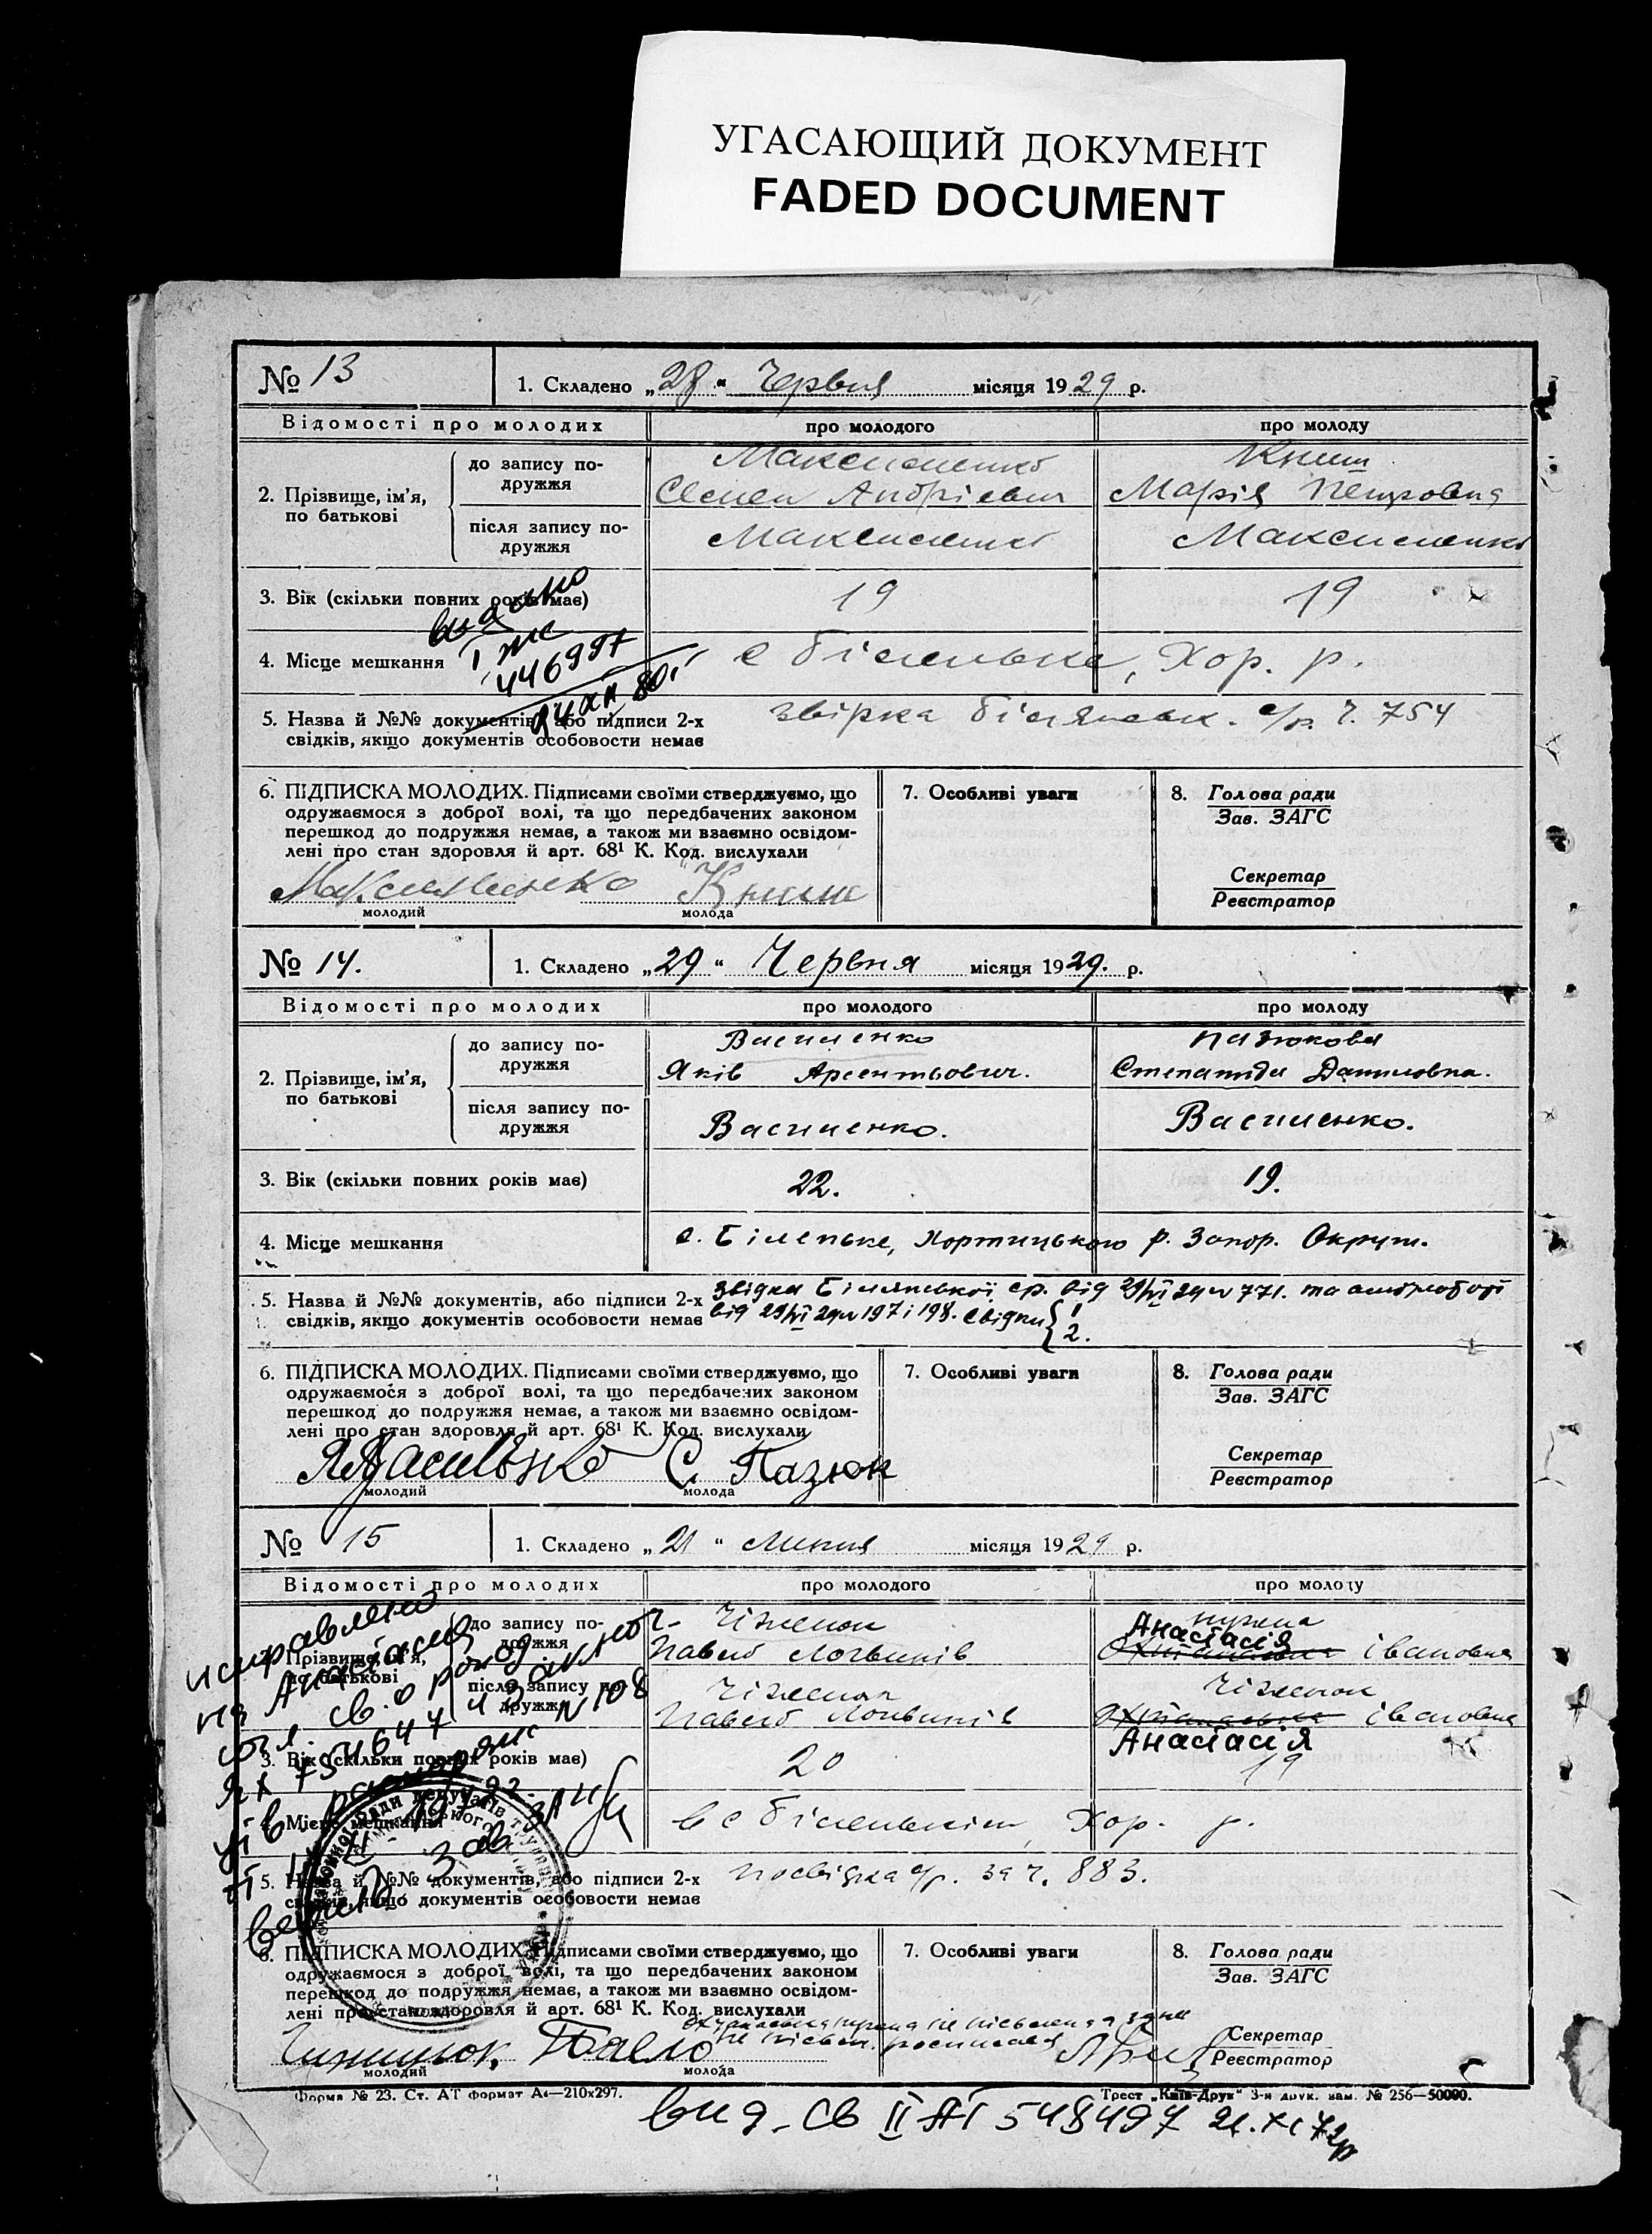 УГАСАЮЩИЙ ДОКУМЕНТ
FADED DOCUMENT
№ 13
1. Складено „28“ Червня місяця 1929 р.
Відомості про молодих
про молодого
про молоду
2. Прізвище, ім'я, по батькові
до запису подружжя
Максименко
Семен Андрієвич
Книш
Марія Петровна
після запису подружжя
Максименко
Максименко
3. Вік (скільки повних років має)
19
19
видано
446997
4. Місце мешкання
с Біленьке, Хор. р.
5. Назва й №№ документів, або підписи 2-х
свідків, якщо документів особовости немає
Ч. 754
6. ПІДПИСКА МОЛОДИХ. Підписами своїми стверджуємо, що
одружаємося з доброї волі, та що передбачених законом
перешкод до подружжя немає, а також ми взаємно освідом-
лені про стан здоровля й арт. 68¹ К. Код. вислухали
Максименко Книш
молодий
молода
7. Особливі уваги
8. Голова ради
Зав. ЗАГС
Секретар
Реєстратор
№ 14.
1. Складено „29“ Червня місяця 1929. р.
Відомості про молодих
про молодого
про молоду
2. Прізвище, ім'я, по батькові
до запису подружжя
Василенко
Яків Арсентьович.
Пазюкова
Степанида Даниловна.
після запису подружжя
Василенко.
Василенко.
3. Вік (скільки повних років має)
22.
19.
4. Місце мешкання
с. Біленьке, Хортицького р. Запор. Округи.
5. Назва й №№ документів, або підписи 2-х
свідків, якщо документів особовости немає
звідка Білянської ср. від 29/VI 29 № 771. та
від 29/VI 29 № 197 і 198. свідки { 1
2.
6. ПІДПИСКА МОЛОДИХ. Підписами своїми стверджуємо, що
одружаємося з доброї волі, та що передбачених законом
перешкод до подружжя немає, а також ми взаємно освідом-
лені про стан здоровля й арт. 68¹ К. Код. вислухали
ЯВасиленко С. Пазюк
молодий
молода
7. Особливі уваги
8. Голова ради
Зав. ЗАГС
Секретар
Реєстратор
№ 15
1. Складено „21“ Липня місяця 1929 р.
Відомості про молодих
про молодого
про молоду
2. Прізвище, ім'я, по батькові
до запису подружжя
Чіженок
Павло Логвинів
Анастасія
Івановна
після запису подружжя
Чіженок
Павло Логвинів
Чіженок
Івановна
Анастасія
исправлено
на Анастасия
св. о рожд.
N 108
3. Вік (скільки повних років має)
20
19
4. Місце мешкання
в с Біленькім, Хор. р.
5. Назва й №№ документів, або підписи 2-х
свідків, якщо документів особовости немає
посвідка с/р. за ч. 883.
6. ПІДПИСКА МОЛОДИХ. Підписами своїми стверджуємо, що
одружаємося з доброї волі, та що передбачених законом
перешкод до подружжя немає, а також ми взаємно освідом-
лені про стан здоровля й арт. 68¹ К. Код. вислухали
Павло
молодий
молода
7. Особливі уваги
8. Голова ради
Зав. ЗАГС
Секретар
Реєстратор
Форма № 23. Ст. АТ формат А4—210х297.
Трест „Київ-Друк“ 3-я друк. зам. № 256—50000.
выд. св II АП 548497 21.XI 72р